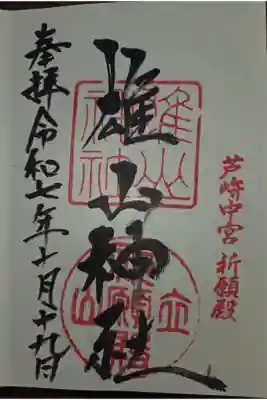 芦峅中宮 祈願殿
雄山神社
奉拝 令和七年十月十九日
雄山神社
立山
祈願殿